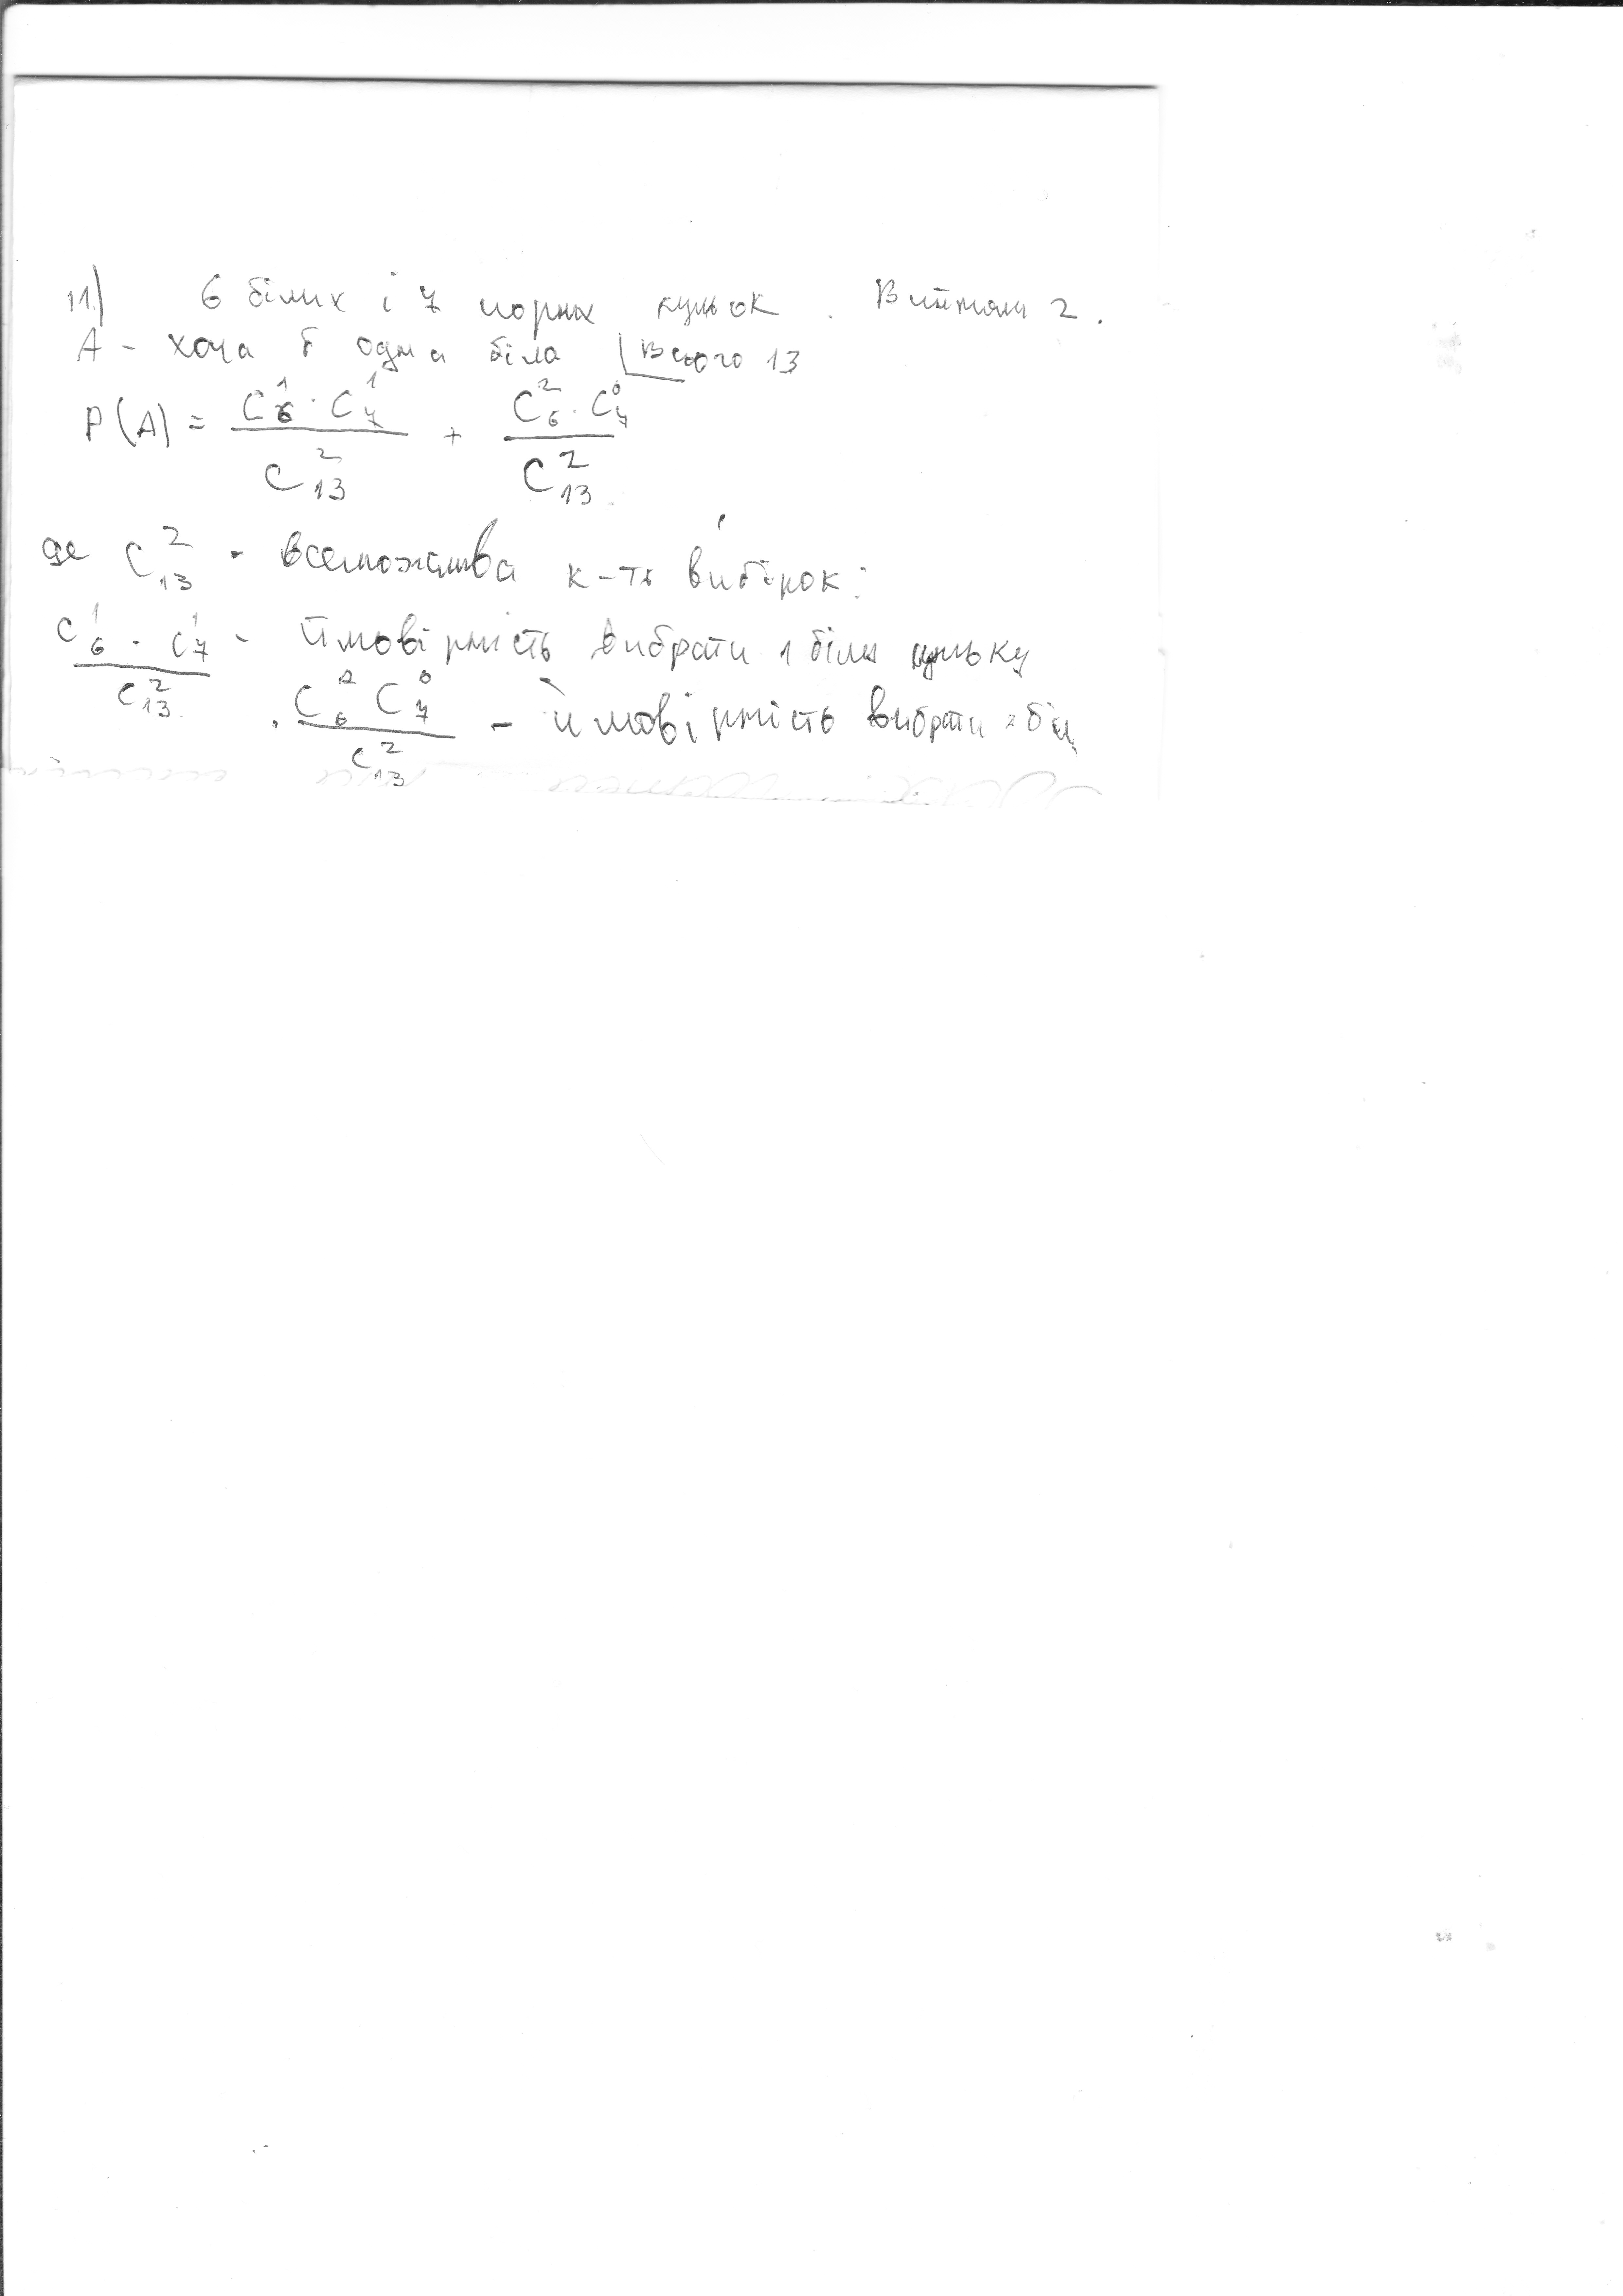 11.) 6 білих і 7 чорних кульок. Вийняли 2.
A - хоча б одна біла | Всього 13
P(A) = (C₆¹ · C₇¹) / C₁₃² + (C₆² · C₇⁰) / C₁₃²
де C₁₃² - всеможлива к-ть вибірок;
(C₆¹ · C₇¹) / C₁₃² - ймовірність вибрати 1 білу кульку
, (C₆² C₇⁰) / C₁₃² - ймовірність вибрати 2 біл